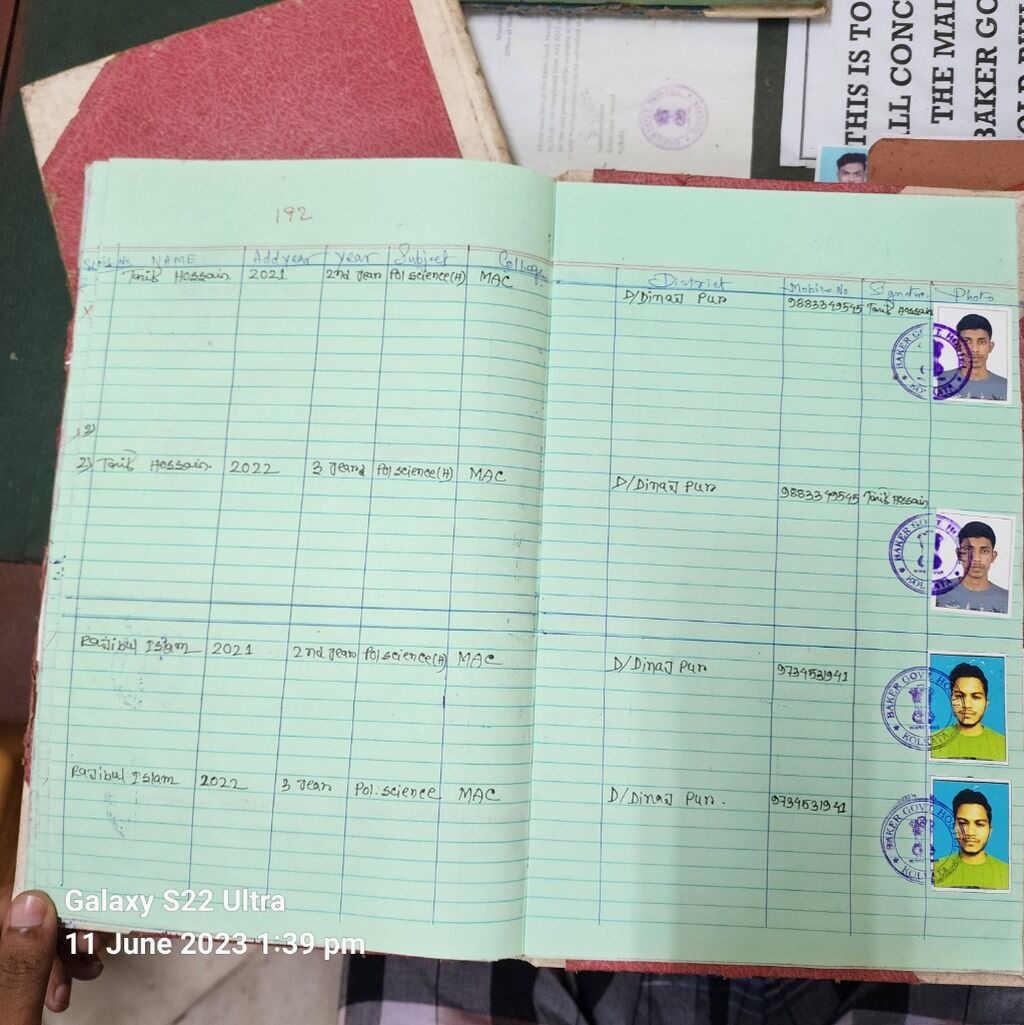 THIS IS TO
ALL CONC
THE MAI
BAKER GO
192
NAME Add year year Subject College District Mobile No Photo
Tarik Hossain 2021 2nd year Pol science(H) MAC D/Dinaj Pur 9883349545 Tarik Hossain
BAKER GOVT. HOSTEL
KOLKATA
2) Tarik Hossain 2022 3 year Pol science(H) MAC D/Dinaj Pur 9883349545 Tarik Hossain
BAKER GOVT. HOSTEL
KOLKATA
Rajibul Islam 2021 2nd year Pol science(H) MAC D/Dinaj Pur 9734531941
BAKER GOVT. HOSTEL
KOLKATA
Rajibul Islam 2022 3 year Pol. science MAC D/Dinaj Pur. 9734531941
BAKER GOVT. HOSTEL
KOLKATA
Galaxy S22 Ultra
11 June 2023 1:39 pm